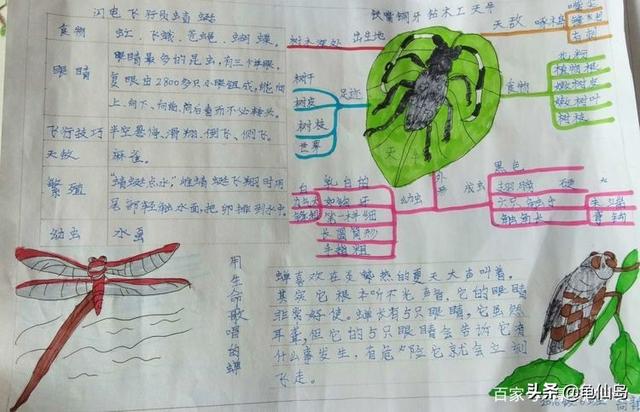 闪电飞行员蜻蜓
食物
虹、飞蛾、苍蝇、蝴蝶。
眼睛
眼睛最多的昆虫,有三个单眼,
复眼由2800多只小眼组成,能向
上、向下、向前、向后看而不必转头。
飞行技巧
半空悬停、滑翔、倒飞、侧飞。
天敌
麻雀。
繁殖
"蜻蜓点水",雌蜻蜓飞翔时用
尾部轻触水面,把卵排到水中。
幼虫
水虿
铁嘴钢牙钻木工天牛
树木深处
出生地
天敌
啄木鸟
足迹
树干
树皮
树枝
世界
食物
花粉
嫩树皮
嫩树叶
树枝
天牛
外形
幼虫
乳白的
长圆筒形
手指粗
成虫
黑色
翅膀
硬
六只触手
触角长
用生命歌唱的蝉
蝉喜欢在炎热的夏天大声叫着。
其实它根本听不见声音,它的眼睛
非常好使。蝉长有5只眼睛,它虽然
耳聋,但它的5只眼睛会告诉它有
什么事发生,有危险它就会立刻
飞走。
百家
头条 @龟仙岛